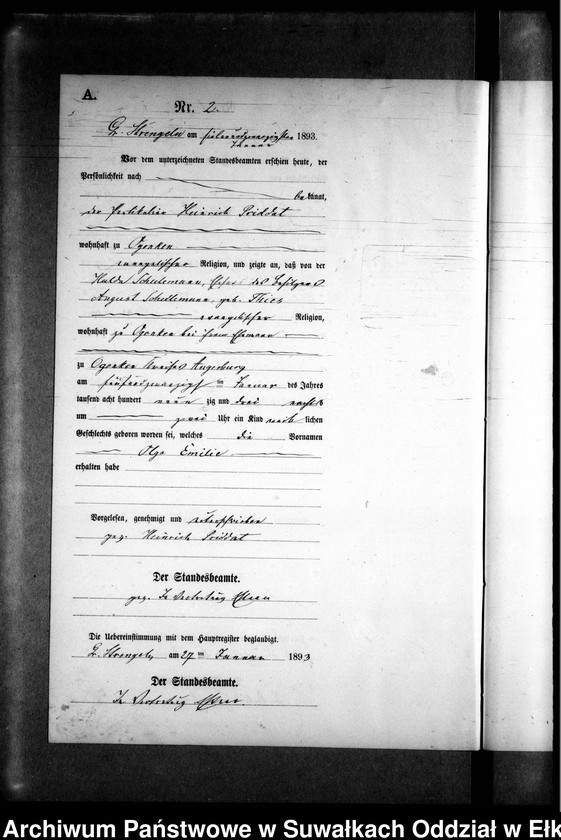 A.
Nr. 2.
Gr. Strengeln am siebenundzwanzigsten
Januar 1893.
Vor dem unterzeichneten Standesbeamten erschien heute, der
Persönlichkeit nach
bekannt,
der Heinrich Priddat
wohnhaft zu Ogonken
evangelischer Religion, und zeigte an, daß von der
Hulda Schullemann, Ehefrau des Besitzers
August Schullemann, geb. Thies
evangelischer Religion,
wohnhaft zu Ogonken bei ihrem Ehemann
zu Ogonken Kreises Angerburg
am fünfundzwanzigsten Januar des Jahres
tausend acht hundert neun zig und drei nachts
um zwei Uhr ein Kind weib lichen
Geschlechts geboren worden sei, welches die Vornamen
Olga Emilie
erhalten habe
Vorgelesen, genehmigt und unterschrieben
gez. Heinrich Priddat
Der Standesbeamte.
gez. In Vertretung
Die Uebereinstimmung mit dem Hauptregister beglaubigt.
Gr. Strengeln am 27 ten Januar 1893
Der Standesbeamte.
In Vertretung
Archiwum Państwowe w Suwałkach Oddział w Ełk